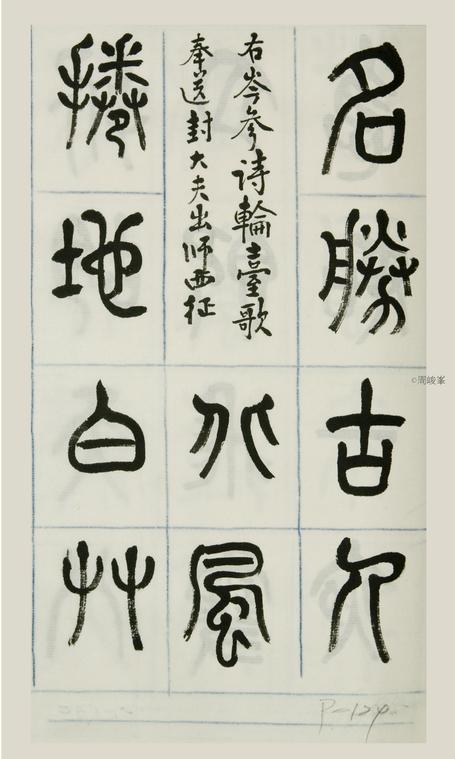 名勝古人
右岑參詩輪臺歌
奉送封大夫出師西征
北風
捲地白艸
©周峻峯
P-124